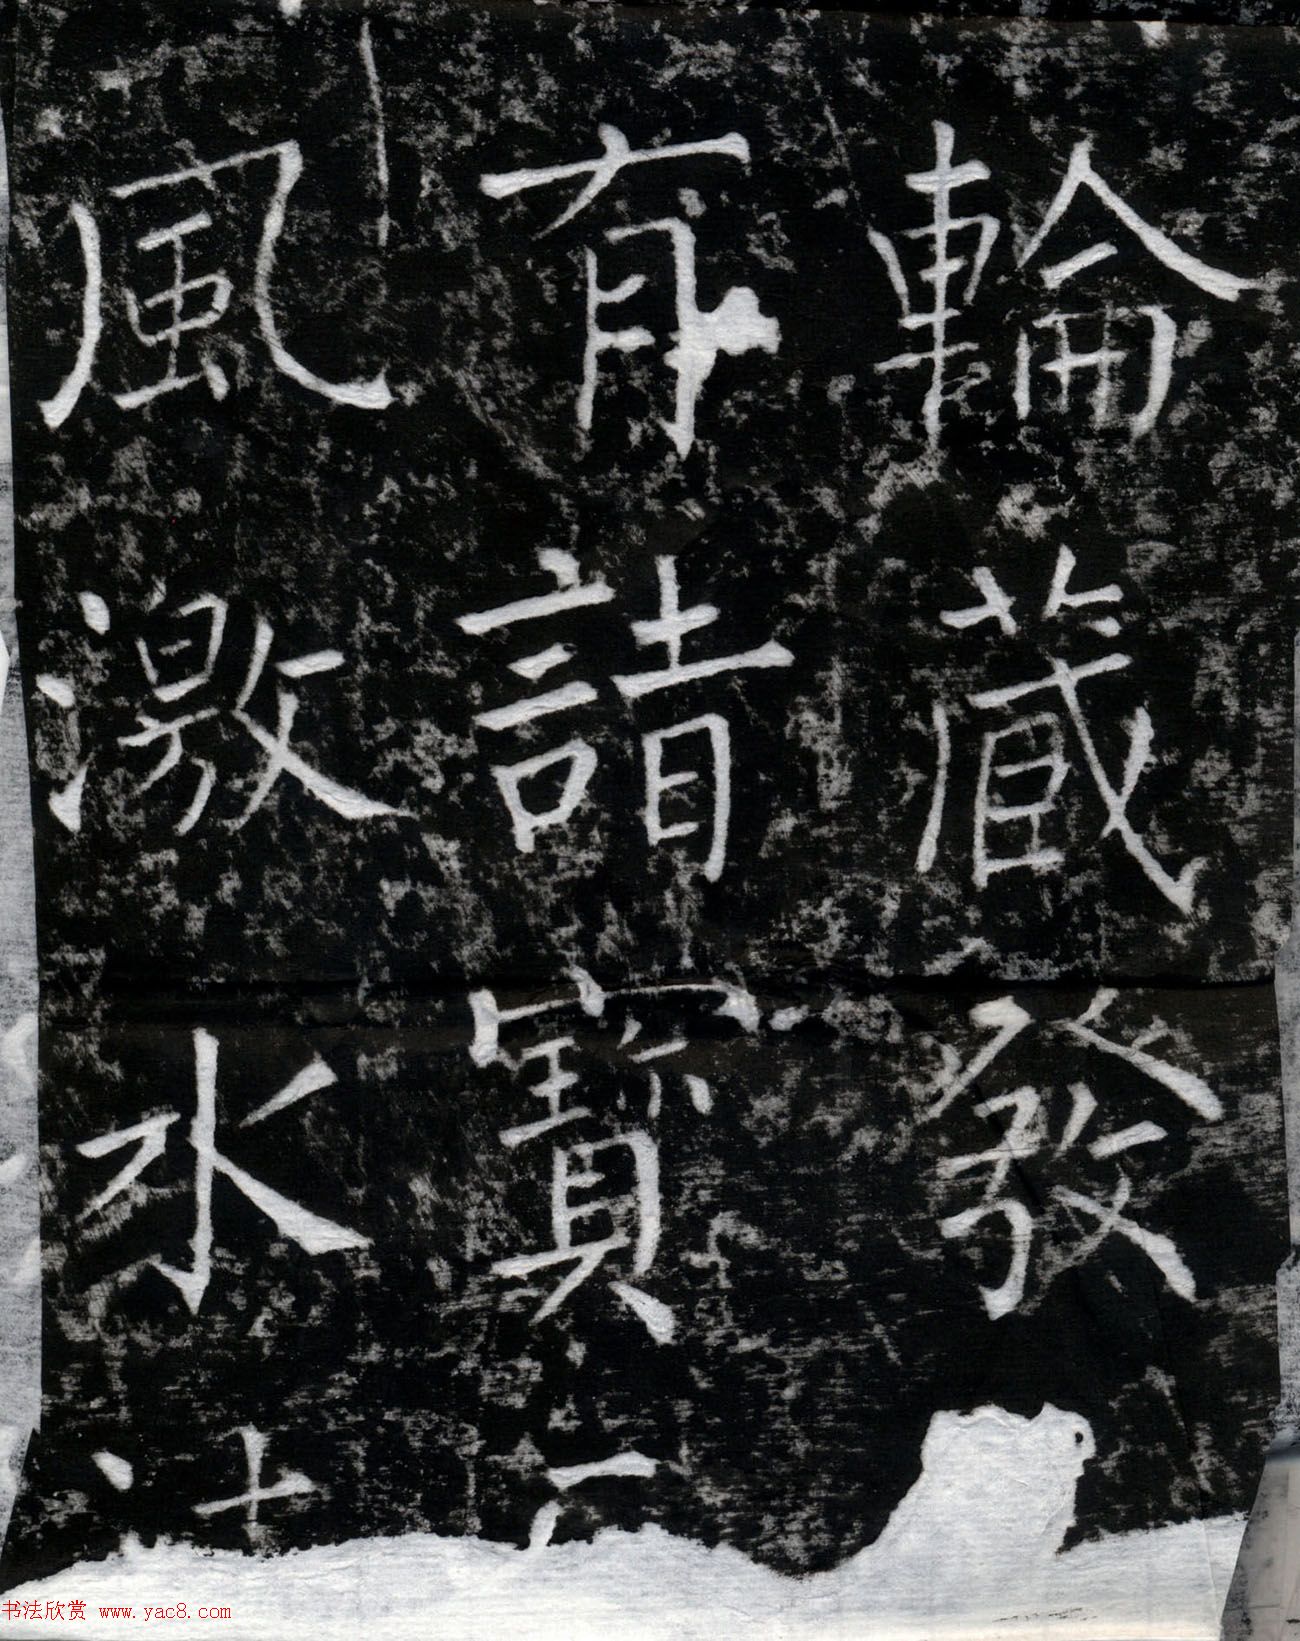 輪藏發
有請寶
風激水
书法欣赏 www.yac8.com